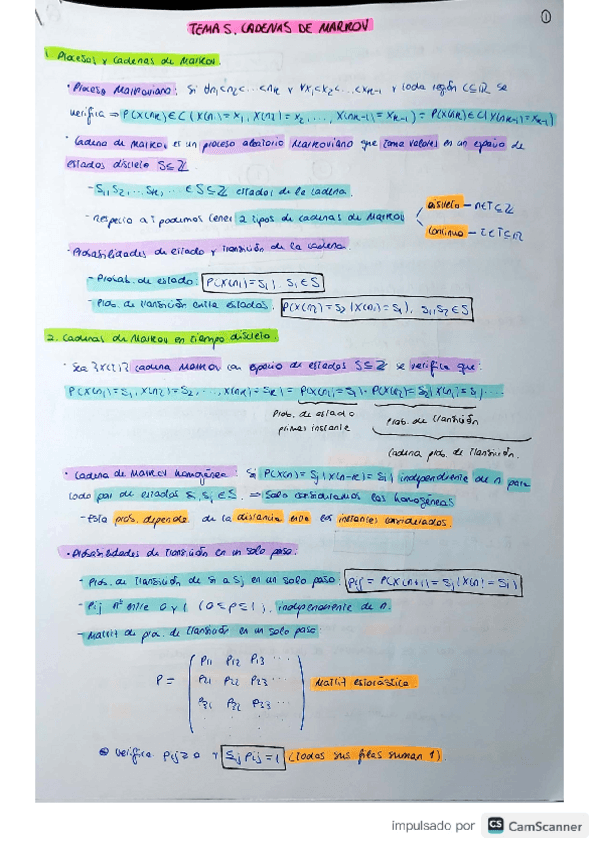 TEMA 5. CADENAS DE MARKOV
1
1. Procesos y cadenas de Markov.
· Proceso Markoviano: Si ∀n₁<n₂<...<nₖ y ∀x₁<x₂<...<xₖ₋₁ y toda región C⊆ℝ se
verifica ⇒ P(X(nₖ)∈C | X(n₁)=x₁, X(n₂)=x₂, ..., X(nₖ₋₁)=xₖ₋₁) = P(X(nₖ)∈C | X(nₖ₋₁)=xₖ₋₁)
· Cadena de Markov es un proceso aleatorio Markoviano que toma valores en un espacio de
estados discreto S⊆ℤ.
- S₁, S₂, ... Sₖ, ... ∈ S⊆ℤ estados de la cadena.
- Respecto a T podemos tener 2 tipos de cadenas de Markov
discreto – n∈T⊆ℤ
continuo – t∈T⊆ℝ
· Probabilidades de estado y transición de la cadena.
- Probab. de estado. P(X(n)=Sᵢ), Sᵢ∈S
- Prob. de transición entre estados. P(X(n₂)=S₂ | X(n₁)=S₁), S₁,S₂∈S
2. Cadenas de Markov en tiempo discreto.
cadena Markov con espacio de estados S⊆ℤ se verifica que:
P(X(n₁)=S₁, X(n₂)=S₂, ..., X(nₖ)=Sₖ) = P(X(n₁)=S₁)·P(X(n₂)=S₂ | X(n₁)=S₁)....
Prob. de estado
primer instante
Prob. de transición
Cadena prob. de transición.
· Cadena de Markov homogénea: Si P(X(n)=Sⱼ | X(n-k)=Sᵢ) independiente de n para
todo par de estados Sᵢ,Sⱼ∈S. ⇒ Solo consideramos las homogéneas
- Esta prob. depende de la distancia entre los instantes considerados.
· Probabilidades de transición en un solo paso.
- Prob. de transición de Si a Sj en un solo paso: pᵢⱼ = P(X(n+1)=Sⱼ | X(n)=Sᵢ)
- Pij nº entre 0 y 1 (0≤p≤1), independiente de n.
- Matriz de pro. de transición en un solo paso:
P₁₁ P₁₂ P₁₃ ...
P = P₂₁ P₂₂ P₂₃ ... Matriz estocástica.
P₃₁ P₃₂ P₃₃ ...
verifica pᵢⱼ≥0 y Σⱼ pᵢⱼ=1 (todas sus filas suman 1).
impulsado por CS CamScanner